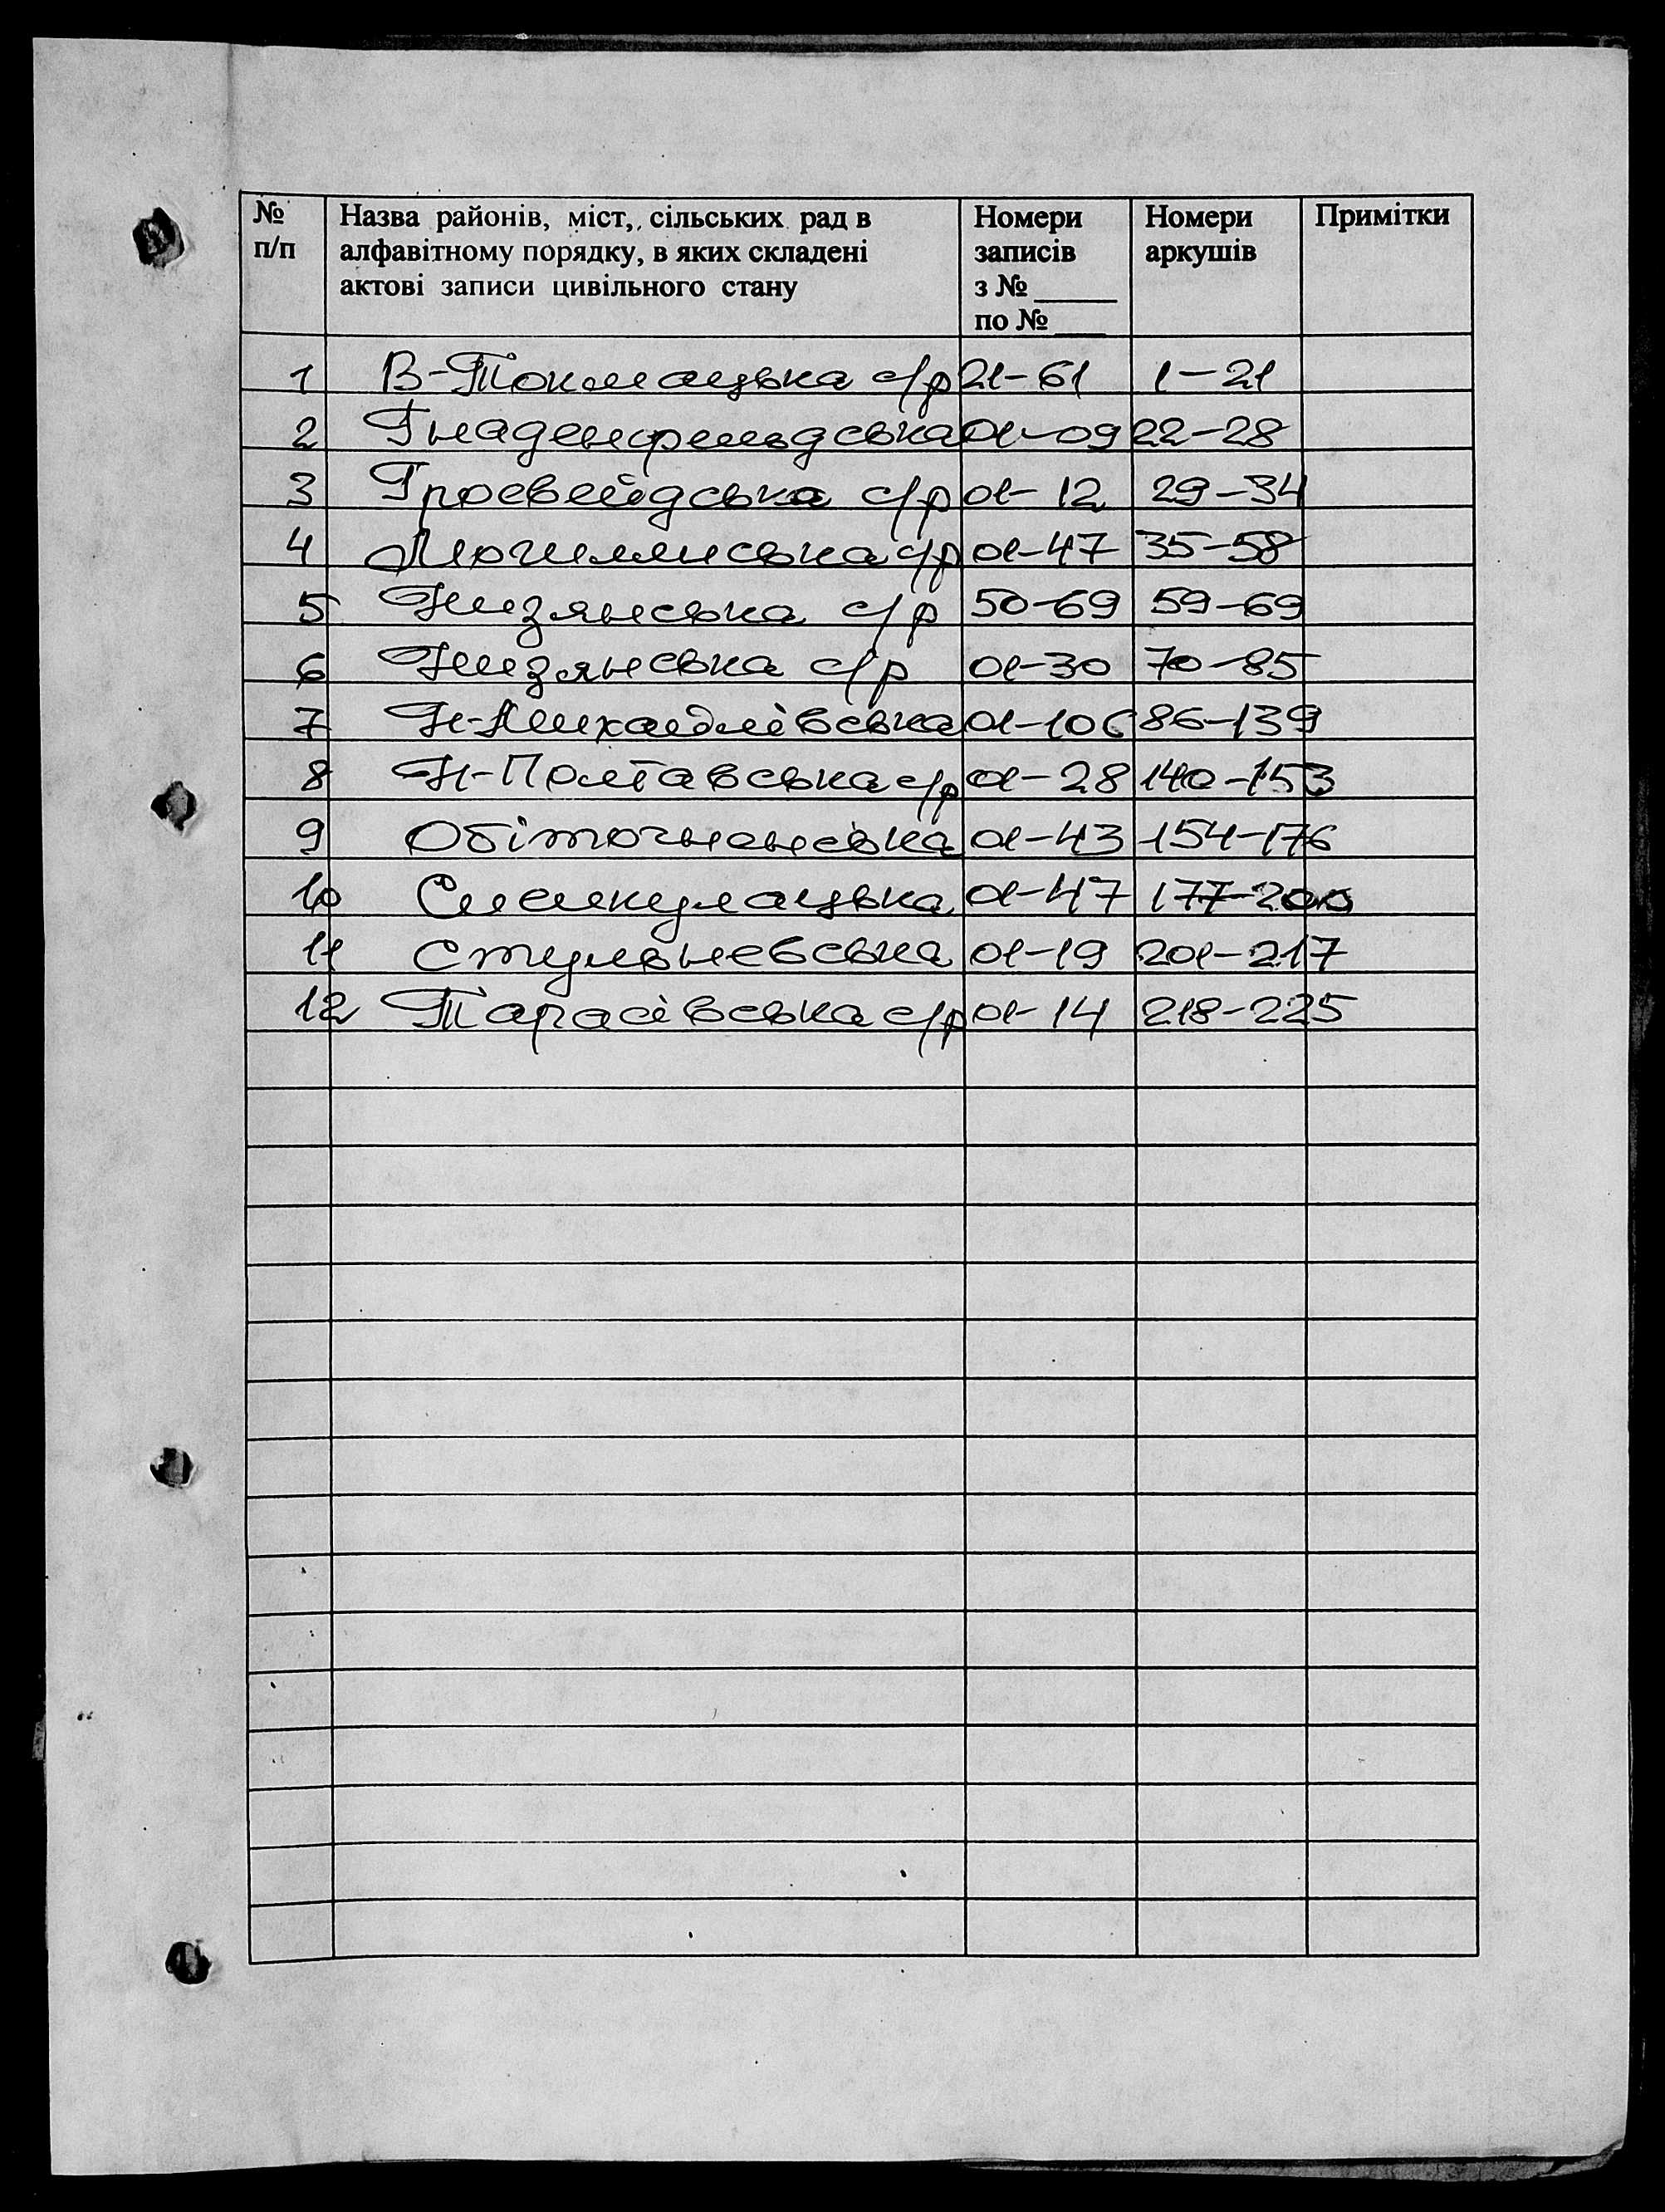 № п/п | Назва районів, міст, сільських рад в алфавітному порядку, в яких складені актові записи цивільного стану | Номери записів з № ____ по № ____ | Номери аркушів | Примітки
1 В-Токмацька с/р 21-61 1-21
2 Гнаденфельдська 01-09 22-28
3 Гросвейдська с/р 01-12 29-34
4 с/р 01-47 35-58
5 Низянська с/р 50-69 59-69
6 Низянська с/р 01-30 70-85
7 Н-Михайлівська 01-106 86-139
8 Н-Полтавська с/р 01-28 140-153
9 Обіточнанська 01-43 154-176
10 01-47 177-200
11 Стульневська 01-19 201-217
12 Тарасівська с/р 01-14 218-225